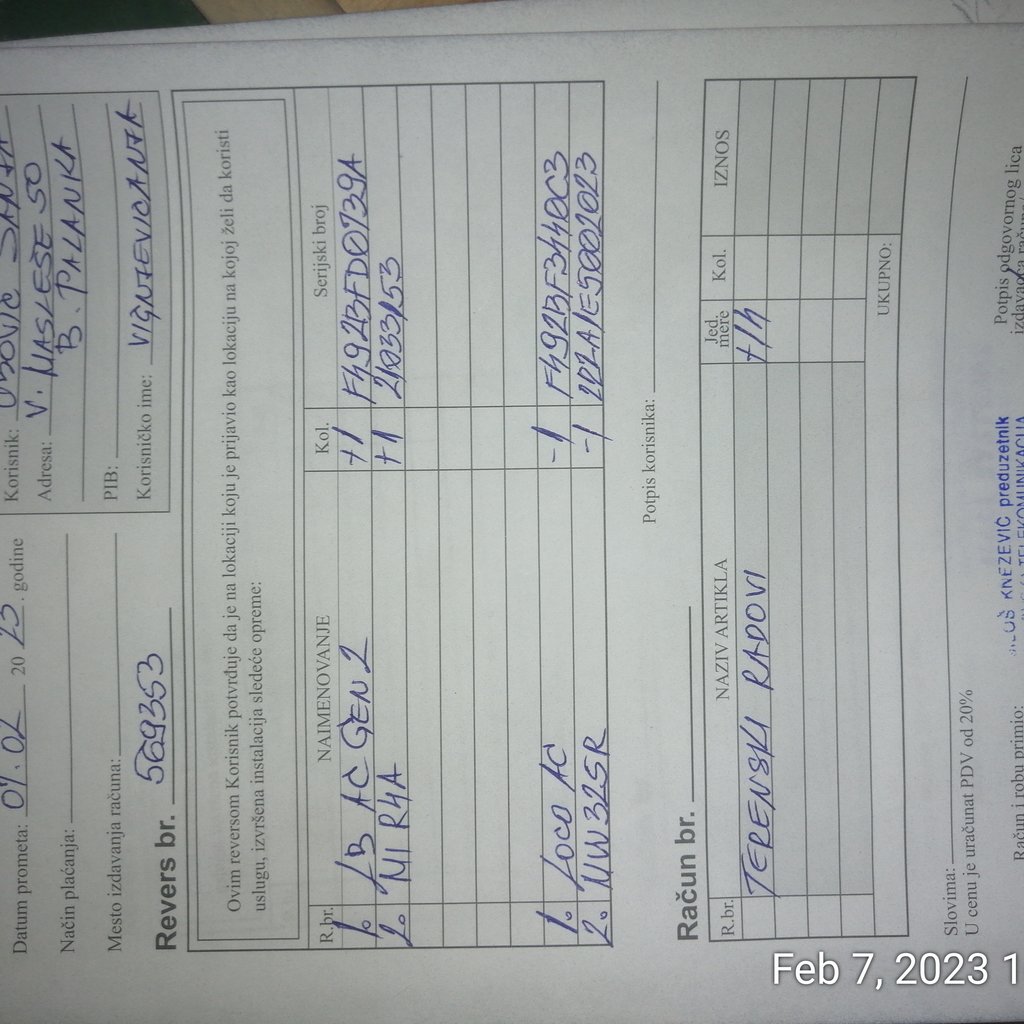 Datum prometa: 07.02 2023. godine
Način plaćanja:
Mesto izdavanja računa:
Korisnik: SANJA
Adresa: V. MASLEŠE 50
B. PALANKA
PIB:
Korisničko ime: VIGNJEVICANJA
Revers br. 569353
Ovim reversom Korisnik potvrđuje da je na lokaciji koju je prijavio kao lokaciju na kojoj želi da koristi
uslugu, izvršena instalacija sledeće opreme:
R.br. NAIMENOVANJE Kol. Serijski broj
1. LB AC GEN2 +1 F492BFD0739A
2. MI R4A +1 21033153
1. LOCO AC -1 F492BF3440C3
2. NW325R -1
Potpis korisnika:
Račun br.
R.br. NAZIV ARTIKLA Jed. mere Kol. IZNOS
TERENSKI RADOVI +1h
UKUPNO:
Slovima:
U cenu je uračunat PDV od 20%
Račun i robu primio:
KNEŽEVIĆ preduzetnik
TELEKOMUNIKACIJA
Potpis odgovornog lica
izdavaoca računa
Feb 7, 2023 1